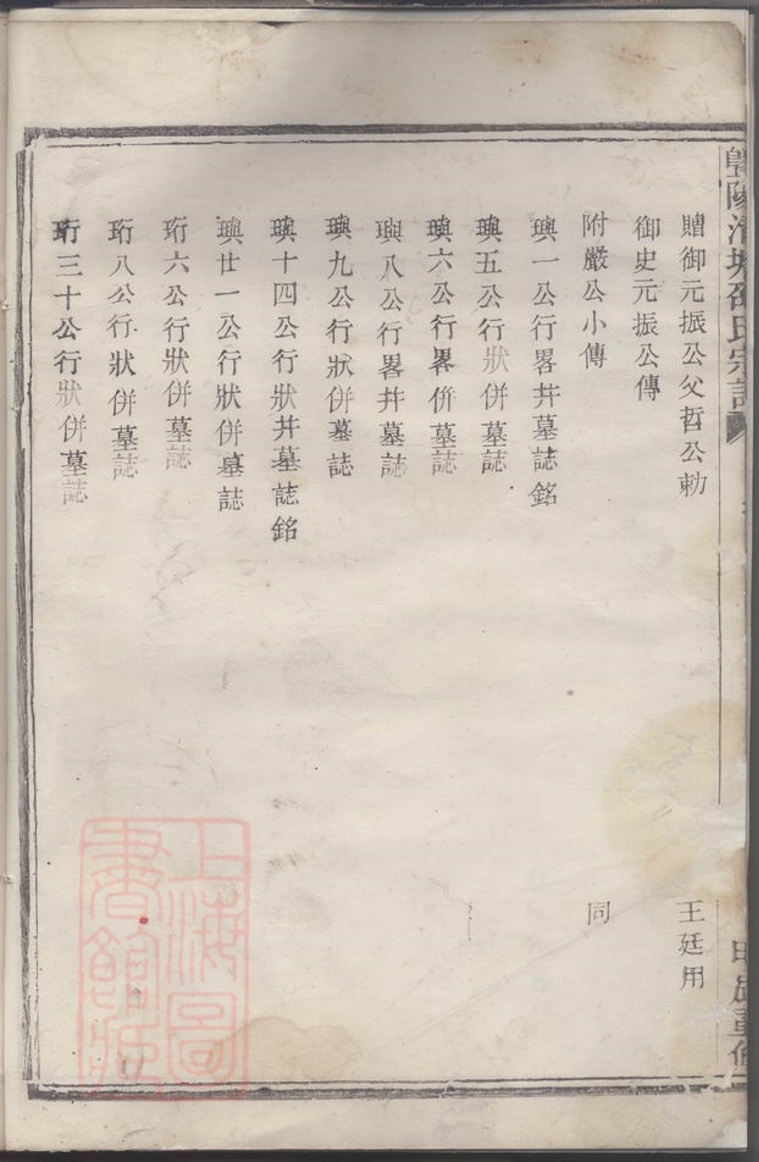 暨陽清塘邵氏宗譜
贈御元振公父哲公勅 王廷用
御史元振公傳
附嚴公小傳 同
璵一公行畧幷墓誌銘
璵五公行狀併墓誌
璵六公行畧併墓誌
璵八公行畧幷墓誌
璵九公行狀併墓誌
璵十四公行狀幷墓誌銘
璵廿一公行狀併墓誌
珩六公行狀併墓誌
珩八公行狀併墓誌
珩三十公行狀併墓誌
上海圖書館藏